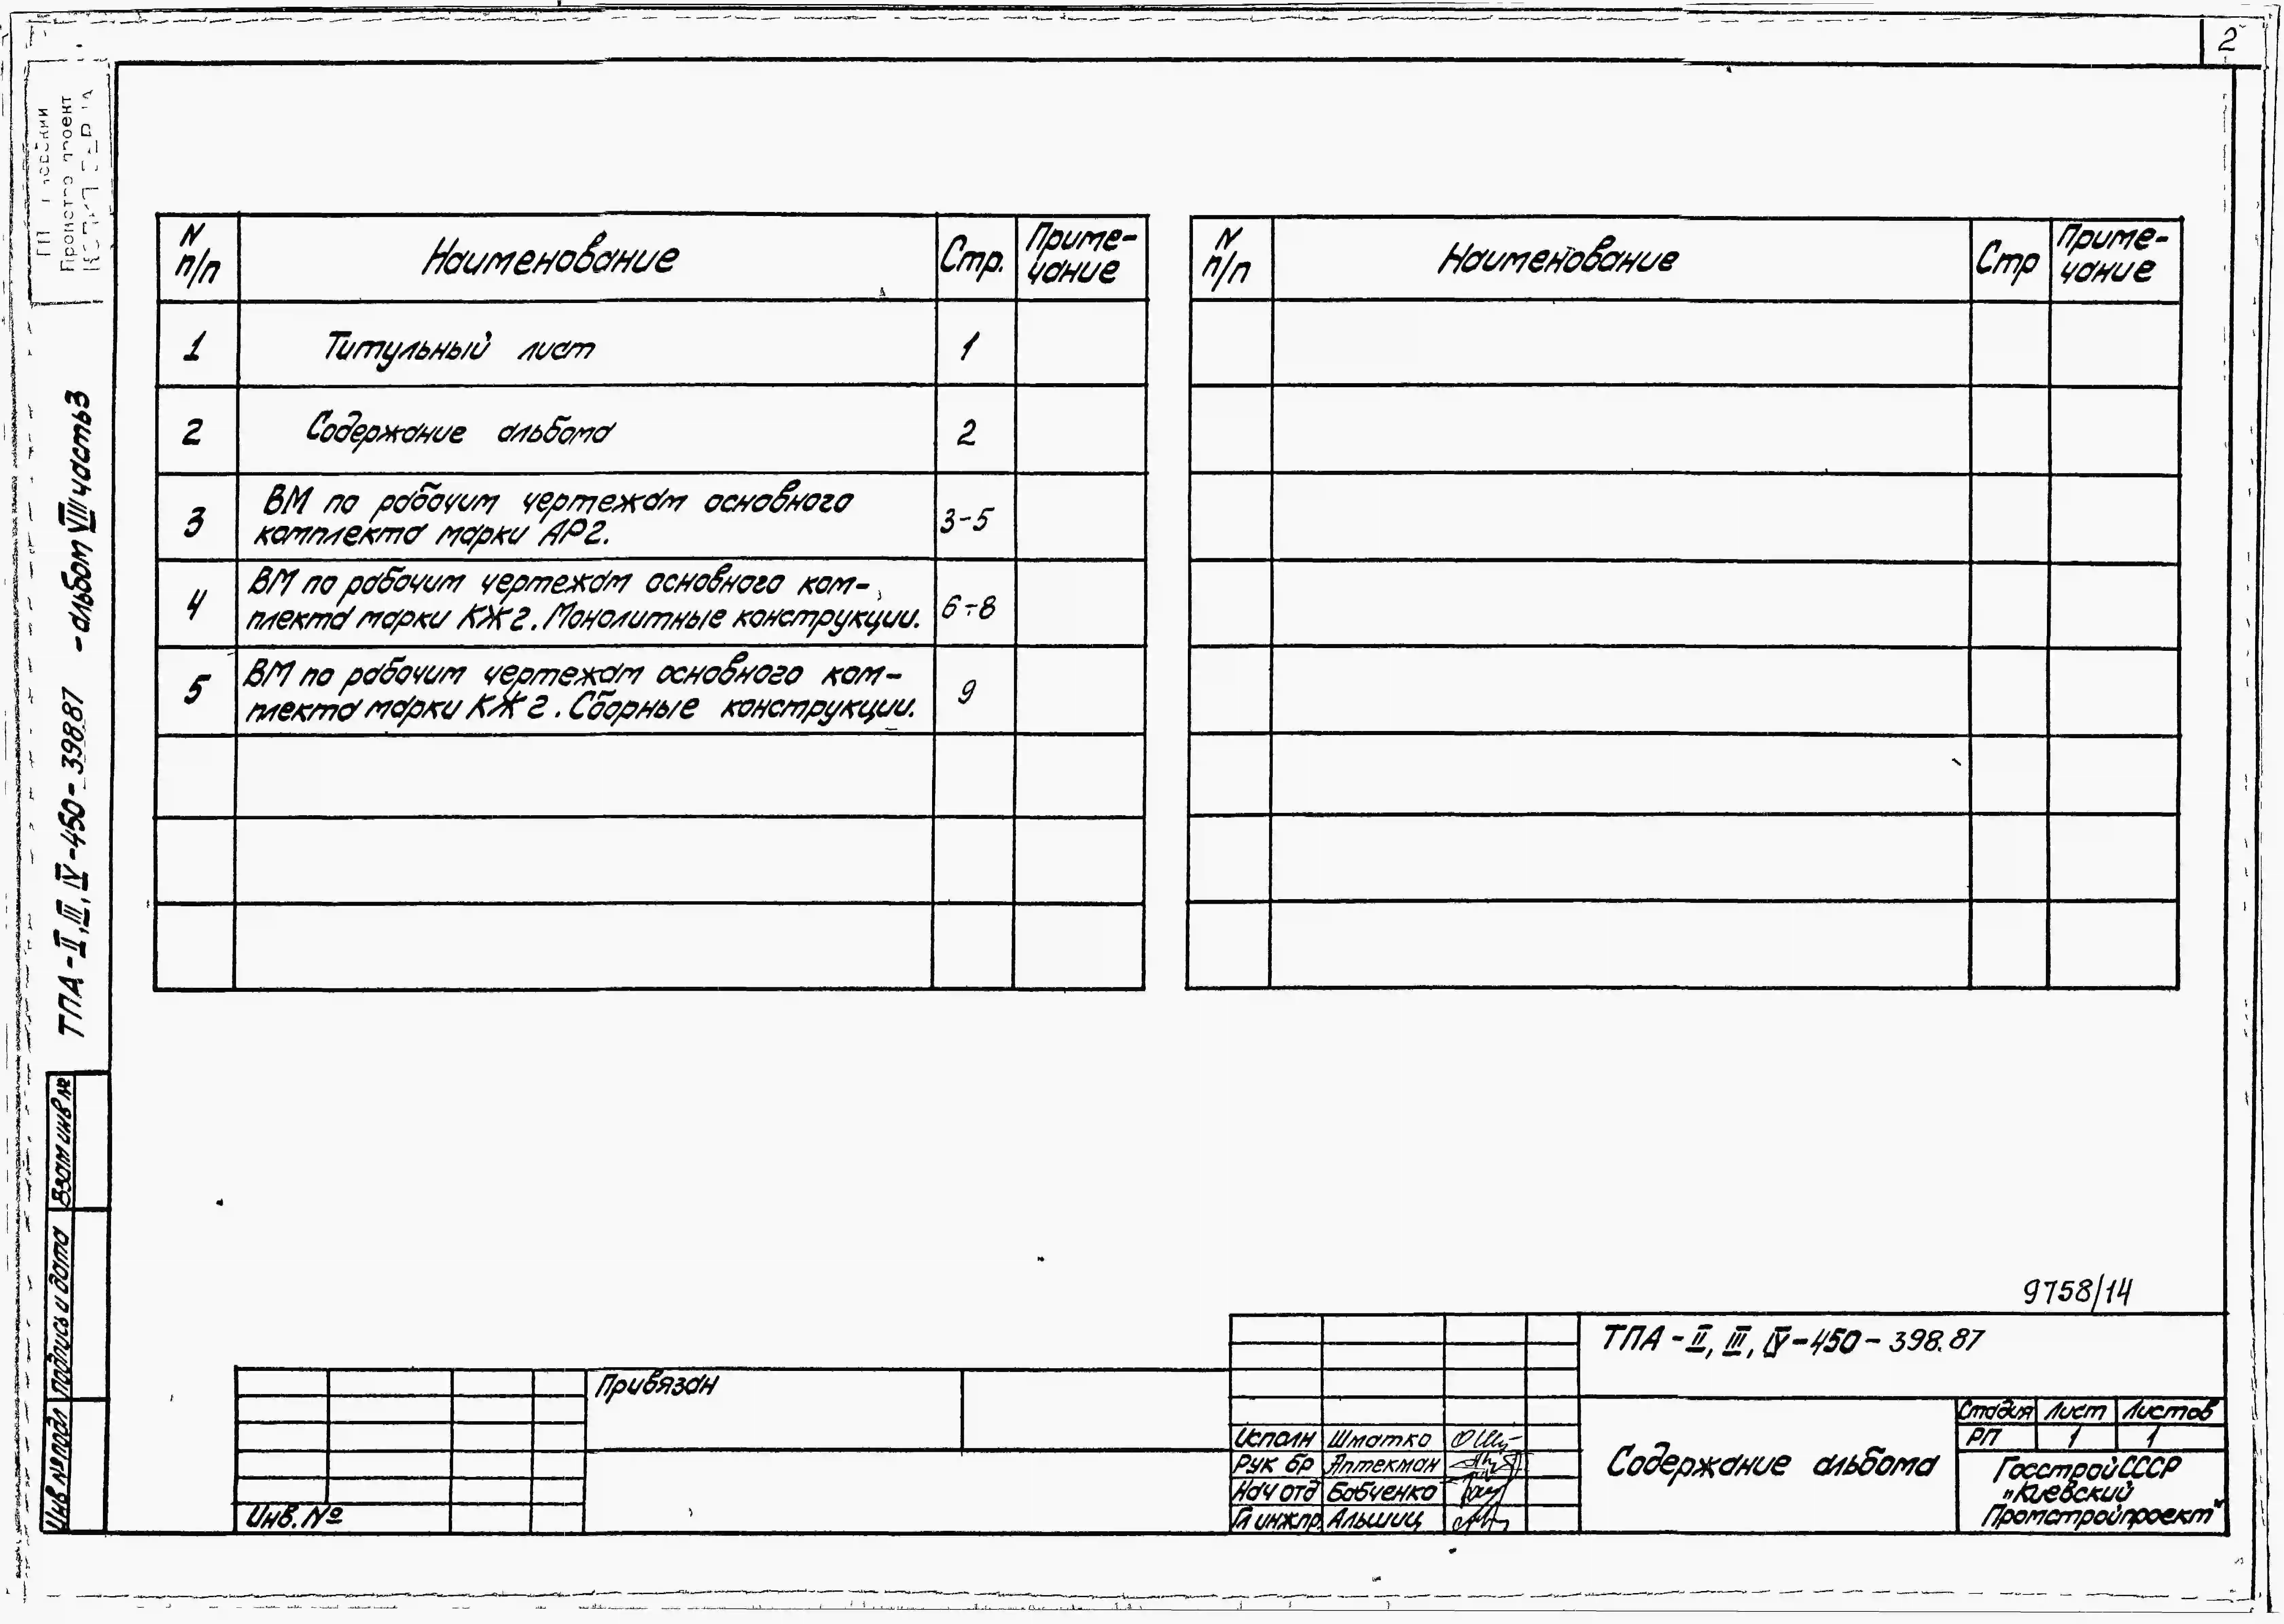 2
N п/п Наименование Стр. Приме-чание
1 Титульный лист 1
2 Содержание альбома 2
3 ВМ по рабочим чертежам основного
комплекта марки АР2. 3-5
4 ВМ по рабочим чертежам основного ком-
плекта марки КЖ2. Монолитные конструкции. 6÷8
5 ВМ по рабочим чертежам основного ком-
плекта марки КЖ2. Сборные конструкции. 9
N п/п Наименование Стр Приме-чание
ТПА-II,III,IV-450-398.87 -альбом VIII часть3
Взам инв №
Подпись и дата
Инв № подл
Привязан
Инв. №
9758/14
ТПА-II, III, IV-450-398.87
Исполн Шматко
Рук бр Аптекман
Нач отд Бабченко
Гл инж.пр. Альшиц
Содержание альбома
Стадия Лист Листов
РП 1 1
Госстрой СССР
"Киевский
Промстройпроект"